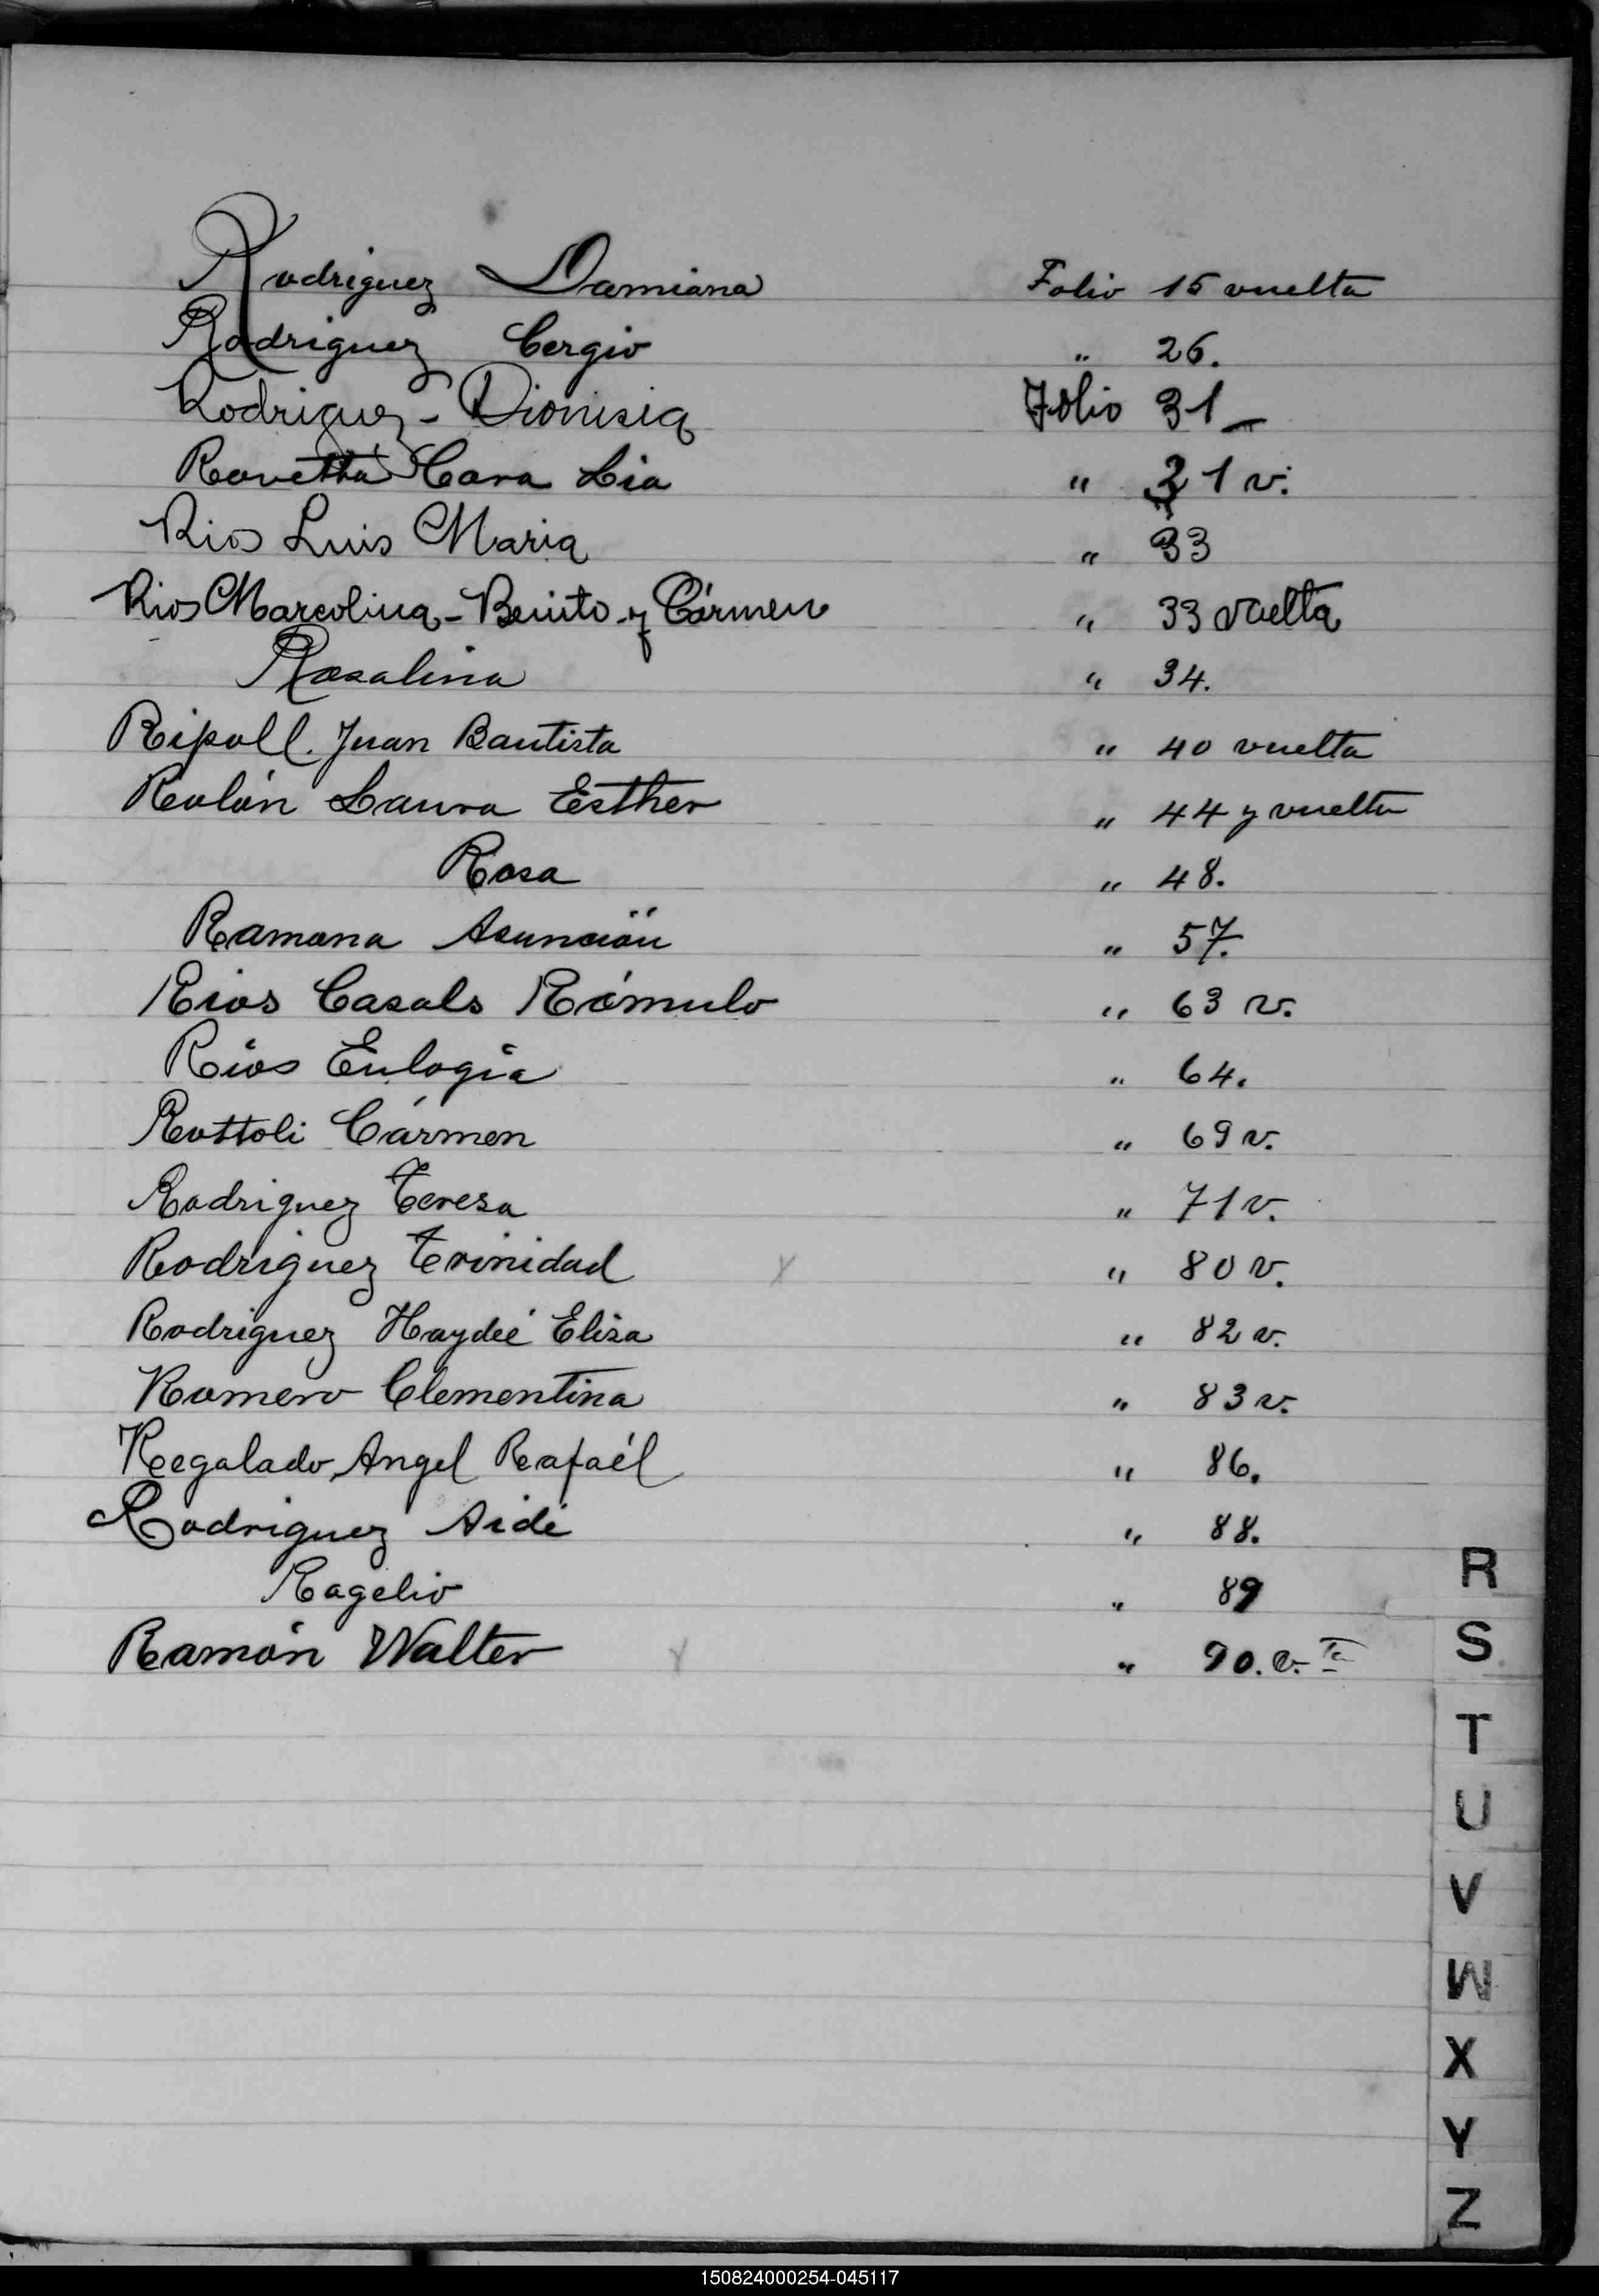 Rodriguez Damiana Folio 15 vuelta
Rodriguez Cergio " 26.
Rodriguez - Dionisia Folio 31_
Rovetta Cora Lia " 31 v.
Rios Luis Maria " 33
Rios Marcolina - Benito y Cármen " 33 vuelta
Rosalina " 34.
Ripoll. Juan Bautista " 40 vuelta
Rolón Laura Esther " 44 y vuelta
Rosa " 48.
Ramona Asunción " 57.
Rios Casals Rómulo " 63 v.
Rios Eulogia " 64.
Rottoli Cármen " 69 v.
Rodriguez Teresa " 71 v.
Rodriguez Trinidad X " 80 v.
Rodriguez Haydeé Elisa " 82 v.
Romero Clementina " 83 v.
Regalado Angel Rafaél " 86.
Rodriguez Aidé " 88.
Rogelio " 89
Ramón Walter X " 90. v. Ta
R
S
T
U
V
W
X
Y
Z
150824000254-045117